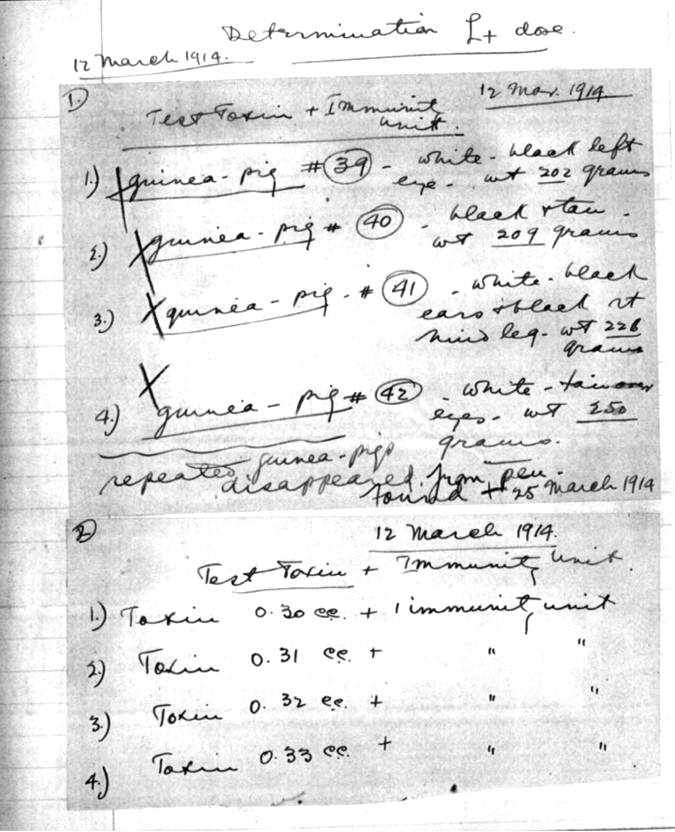 Determination L+ dose.
12 March 1914.
1.
12 Mar. 1914
Test Toxin + Immunity
unit.
1.) guinea-pig #39 - white - black left
eye - wt 202 grams
2.) guinea-pig # 40 - black + tan -
wt 209 grams
3.) X guinea-pig - # 41 - white - black
ears + black rt
hind leg - wt 226
grams
X
4.) guinea-pig # 42 - white - tan over
eyes - wt 250
grams.
repeated - guinea-pigs
disappeared from pen -
found + 25 March 1914
2
12 March 1914.
Test Toxin + Immunity Unit.
1.) Toxin 0.30 cc. + 1 immunity unit
2.) Toxin 0.31 cc. + " "
3.) Toxin 0.32 cc. + " "
4.) Toxin 0.33 cc. + " "